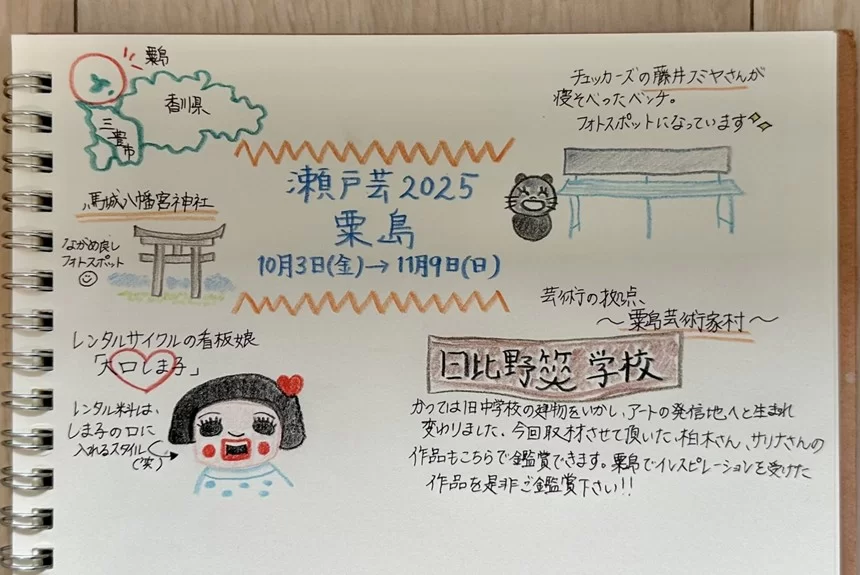 粟島
香川県
三豊市
チェッカーズの藤井フミヤさんが
寝そべったベンチ。
フォトスポットになっています
瀬戸芸2025
粟島
10月3日(金)→11月9日(日)
馬城八幡宮神社
ながめ良し
フォトスポット
芸術の拠点、
〜粟島芸術家村〜
日比野笑学校
かつては旧中学校の建物をいかし、アートの発信地へと生まれ
変わりました。今回取材させて頂いた、柏木さん、サリナさんの
作品もこちらで鑑賞できます。粟島でインスピレーションを受けた
作品を是非ご鑑賞下さい!!
レンタルサイクルの看板娘
「大口しま子」
レンタル料は、
しま子の口に
入れるスタイル
(笑)